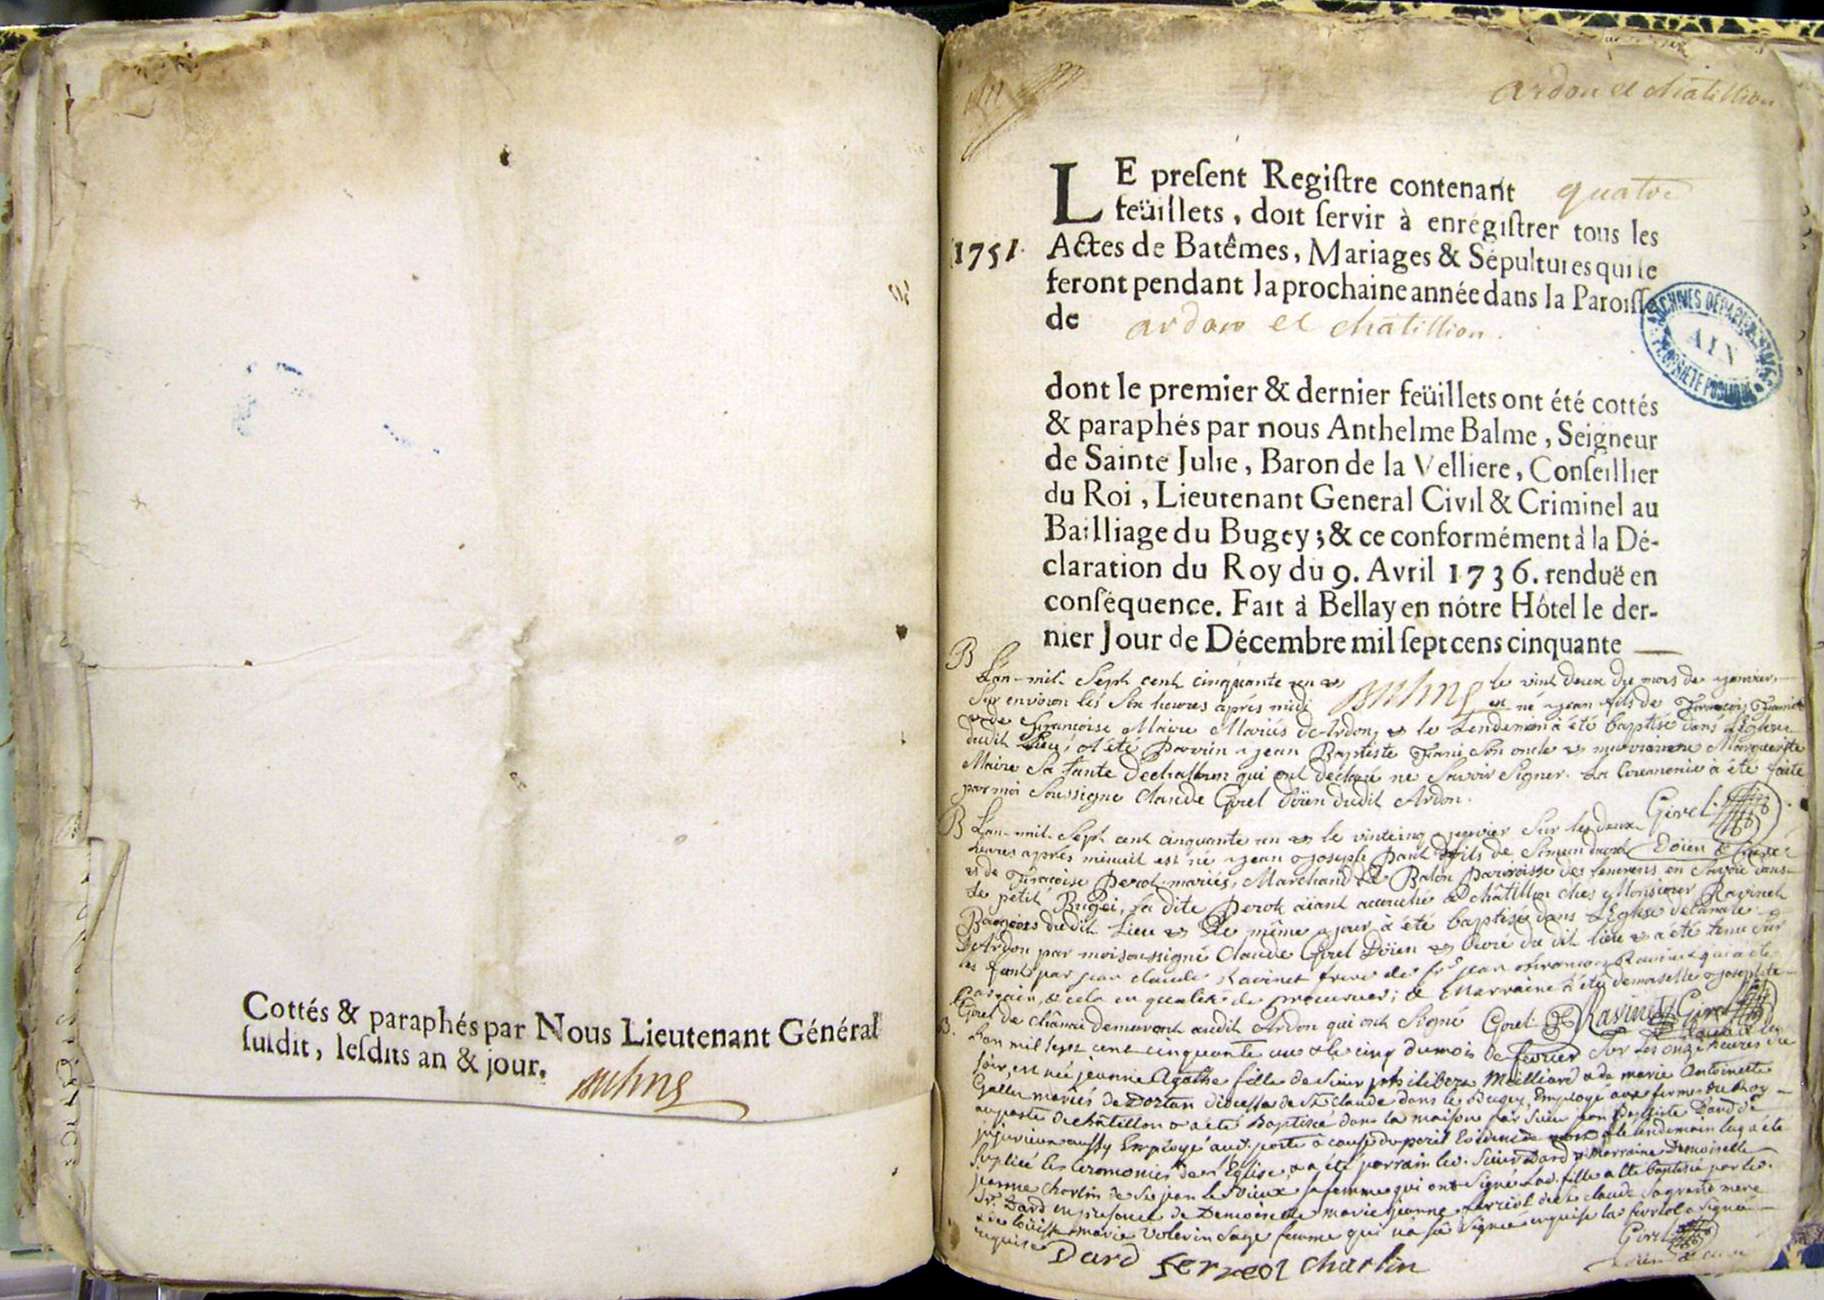 Cottés & paraphés par Nous Lieutenant Général
suſdit, leſdits an & jour.
ardon et châtillion
LE preſent Regiſtre contenant quatre
feüillets, doit ſervir à enrégiſtrer tous les
1751 Actes de Batêmes, Mariages & Sépultures qui ſe
feront pendant la prochaine année dans la Paroiſſe
de ardon et châtillion.
ARCHIVES DÉPARTEMENTALES
AIN
PROPRIÉTÉ PUBLIQUE
dont le premier & dernier feüillets ont été cottés
& paraphés par nous Anthelme Balme, Seigneur
de Sainte Julie, Baron de la Velliere, Conſeillier
du Roi, Lieutenant General Civil & Criminel au
Bailliage du Bugey; & ce conformément à la Dé-
claration du Roy du 9. Avril 1736. renduë en
conſéquence. Fait à Bellay en nôtre Hôtel le der-
nier Jour de Décembre mil ſept cens cinquante
B L'an mil Sept cent cinquante un et le vint deux du mois de janvier
Sur environ les Six heures après midi est né jean fils de François
et de Françoise Maire Mariés d'Ardon, et le Lendemain a été baptisé dans L'Eglise
dudit Lieu, a été Parrin jean Baptiste Son oncle et marraine Marguerite
Maire Sa tante qui ont déclaré ne Savoir Signer. La Ceremonie a été faite
par moi Soussigné Claude Girel Doïen dudit Ardon. Girel
B L'an mil Sept cent cinquante un et le vintcinq janvier Sur les deux
heures après minuit est né jean joseph fils de Doïen & Curé
et de Françoise Perot mariés, Marchand de Parroisse des en Savoie dans
le petit Bugei, La dite Perot aïant accouché à Châtillon ches Monsieur Ravinet
Bourgeois dudit Lieu et Le même jour a été baptisé dans L'Eglise
d'Ardon par moi soussigné Claude Girel Doïen et Curé du dit lieu et a été tenu Sur
les fonts par jean claude Ravinet frere de Sr. jean François Ravinet qui a été
parrain, & cela en qualité de procureur; & Marraine a été demoiselle
Girel de demeurant audit Ardon qui ont Signé Girel Ravinet Girel
B. L'an mil sept cent cinquante un & le cinq du mois de fevrier Sur les onze heures du
soir, est née jeanne Agathe fille de Sieur philibert Mailliard & de marie Antoinette
mariés de Dortan diocesse de St. claude dans le Bugey, Employé aux fermes du Roy
au poste de châtillon & a été Baptisée dans la maison par Sieur jean Baptiste Dard de
aussy Employé audt. poste à cause du peril & le lendemain luy a été
Suplée les Ceremonies dans l'Eglise, & a été parrain led. Sieur Dard & Marraine Demoiselle
jeanne Charlin de sa femme qui ont Signé Lad. fille a été baptisée par led.
Sr. Dard en presence de Demoiselle marie jeanne ferreol de St. claude Sa grand mere
& de marie Volerin Sage femme qui n'a Sû Signer enquise la ferreol a Signé
enquise Dard Ferreol Charlin Girel